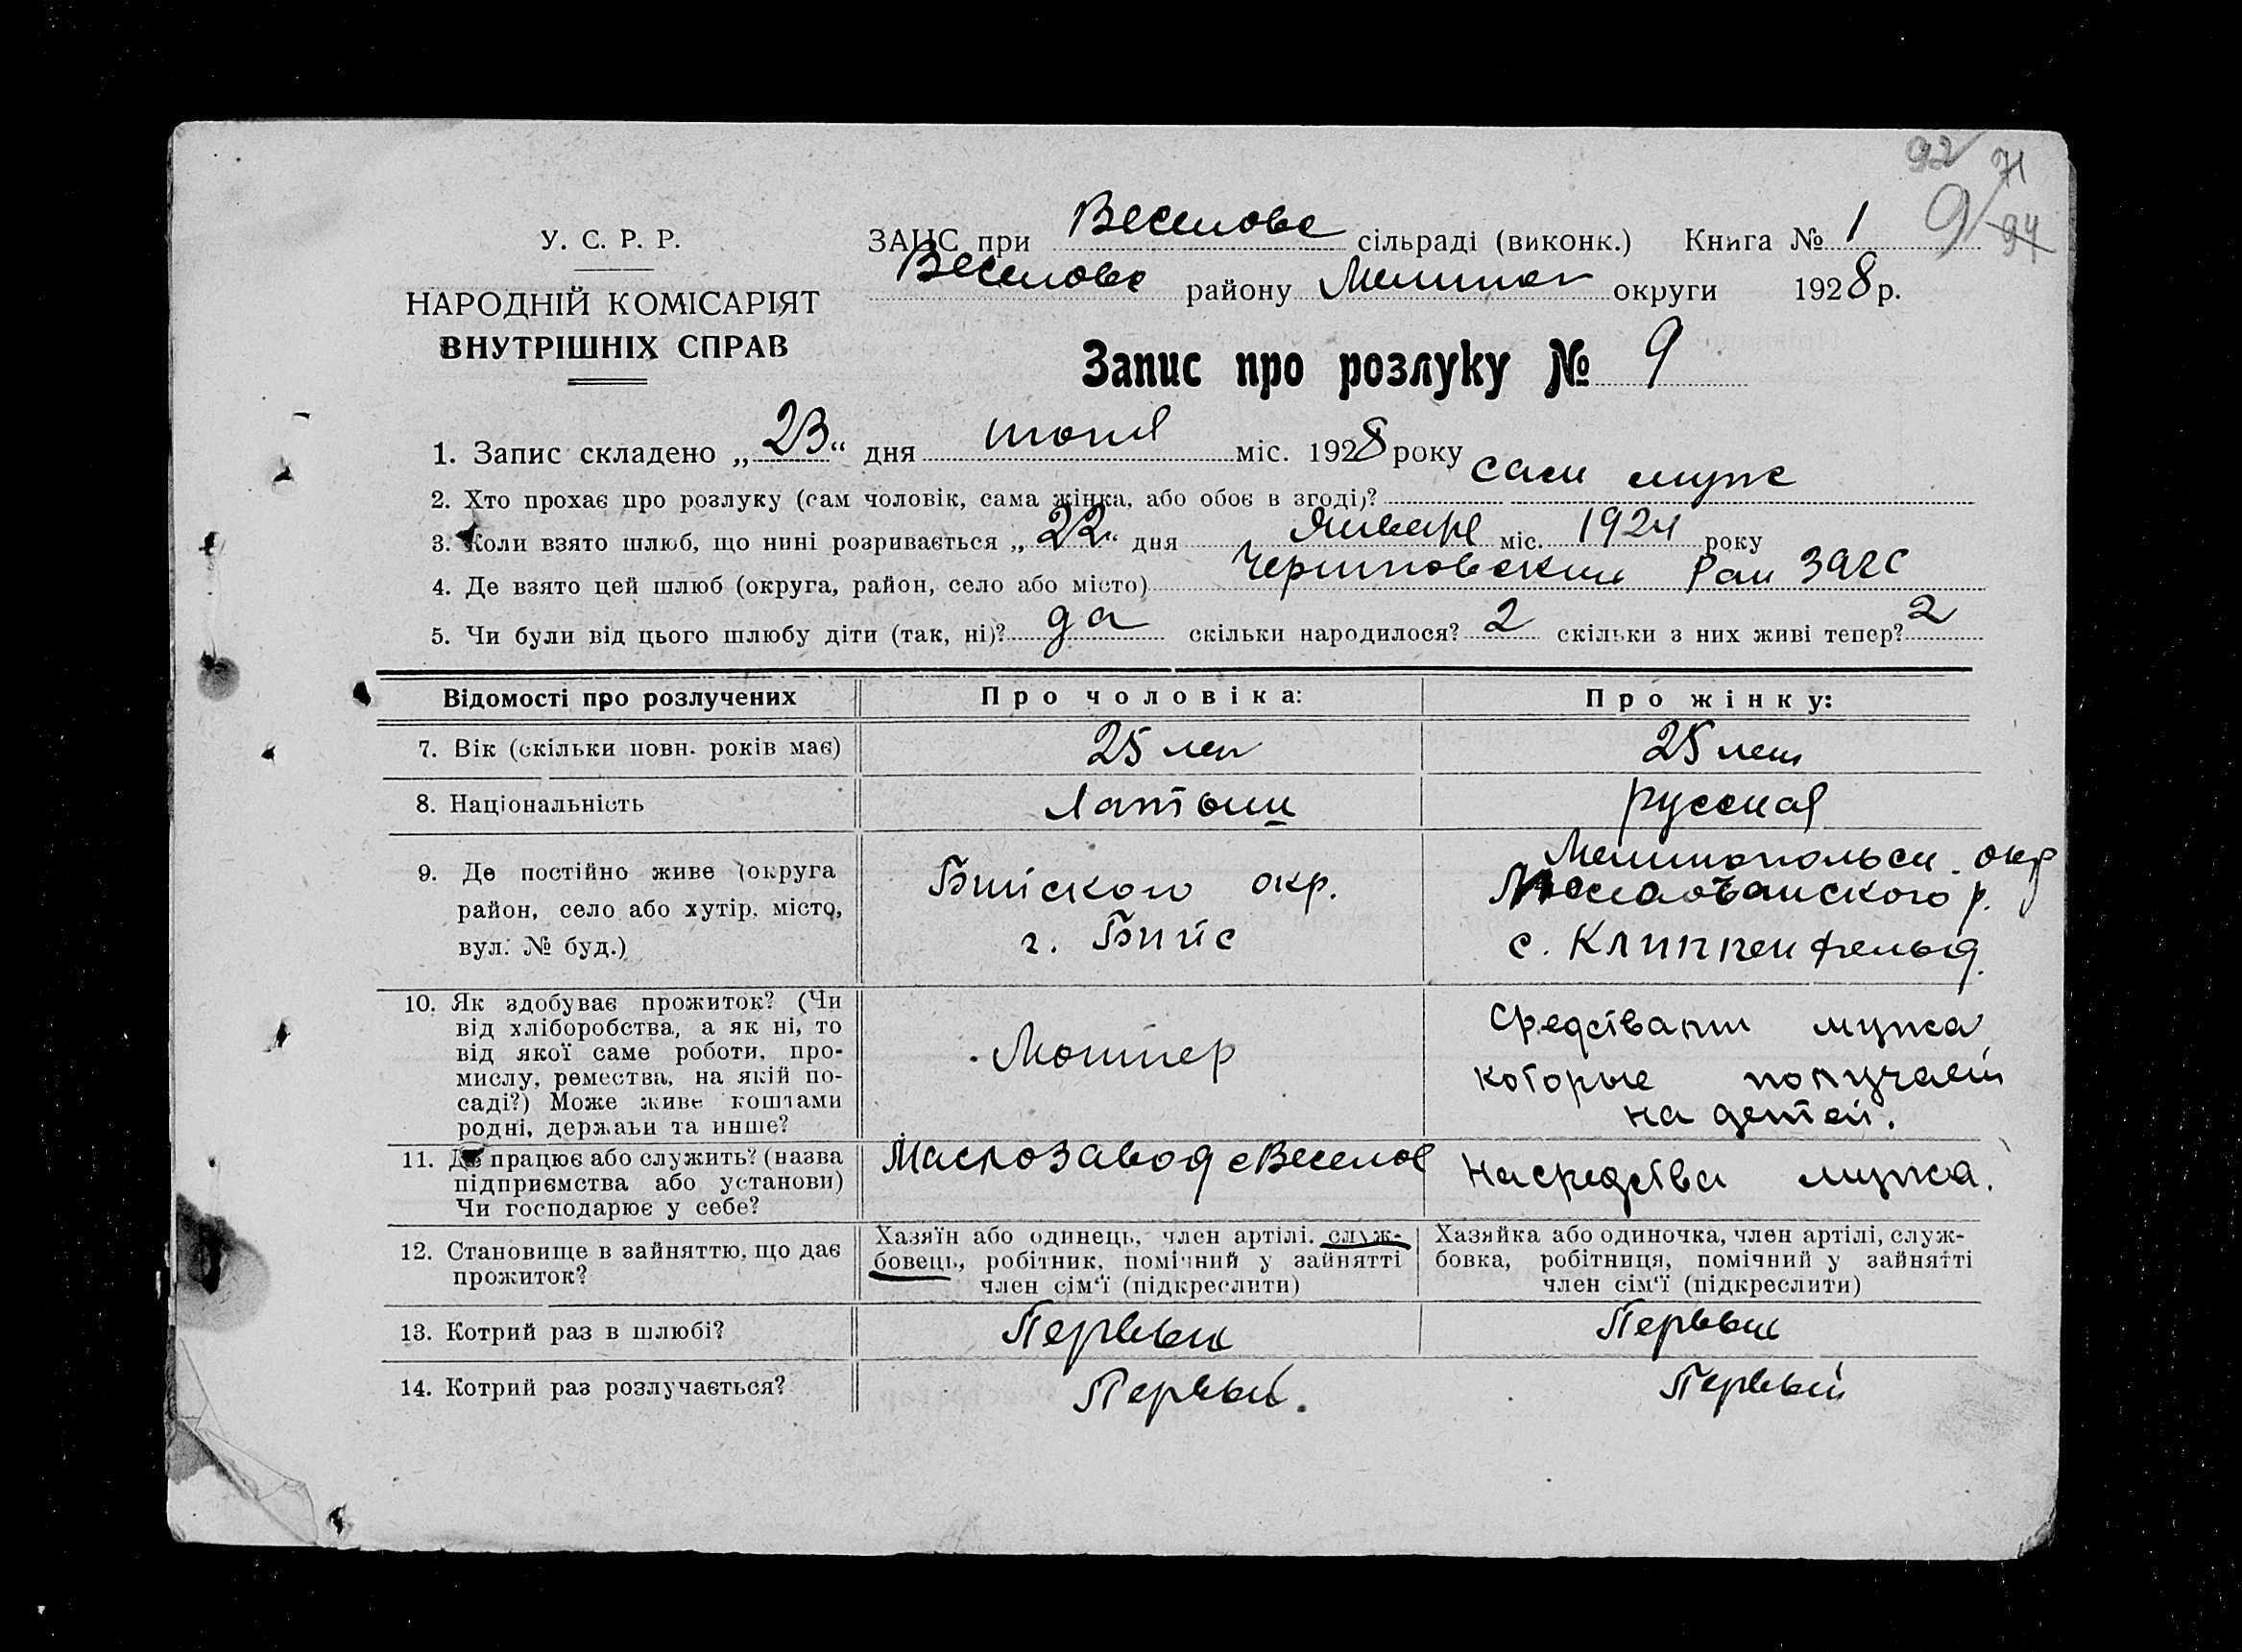 92 71
9 94
У. С. Р. Р.
НАРОДНІЙ КОМІСАРІЯТ
ВНУТРІШНІХ СПРАВ
ЗАЦС при Веселове сільраді (виконк.) Книга № 1
Веселове району Мелитоп округи 1928 р.
Запис про розлуку № 9
1. Запис складено „23“ дня июня міс. 1928 року
2. Хто прохає про розлуку (сам чоловік, сама жінка, або обоє в згоді)? сам муж
3. Коли взято шлюб, що нині розривається „22“ дня Января міс. 1924 року
4. Де взято цей шлюб (округа, район, село або місто) Рай ЗАГС
5. Чи були від цього шлюбу діти (так, ні)? да скільки народилося? 2 скільки з них живі тепер? 2
Відомості про розлучених
Про чоловіка:
Про жінку:
7. Вік (скільки повн. років має)
25 лет
25 лет
8. Національність
Латыш
русская
9. Де постійно живе (округа
район, село або хутір, місто,
вул. № буд.)
Бийского окр.
г. Бийс
Мелитопольск. окр
р.
с. Клиппенфельд.
10. Як здобуває прожиток? (Чи
від хліборобства, а як ні, то
від якої саме роботи, про-
мислу, ремества, на якій по-
саді?) Може живе коштами
родні, держави та инше?
Монтер
Средствами мужа
которые получает
на детей.
11. Де працює або служить? (назва
підприємства або установи)
Чи господарює у себе?
Маслозавод с Веселое
На средства мужа.
12. Становище в зайняттю, що дає
прожиток?
Хазяїн або одинець, член артілі, служ-
бовець, робітник, помічний у зайнятті
член сім‘ї (підкреслити)
Хазяйка або одиночка, член артілі, служ-
бовка, робітниця, помічний у зайнятті
член сім‘ї (підкреслити)
13. Котрий раз в шлюбі?
Первый
Первый
14. Котрий раз розлучається?
Первый.
Первый